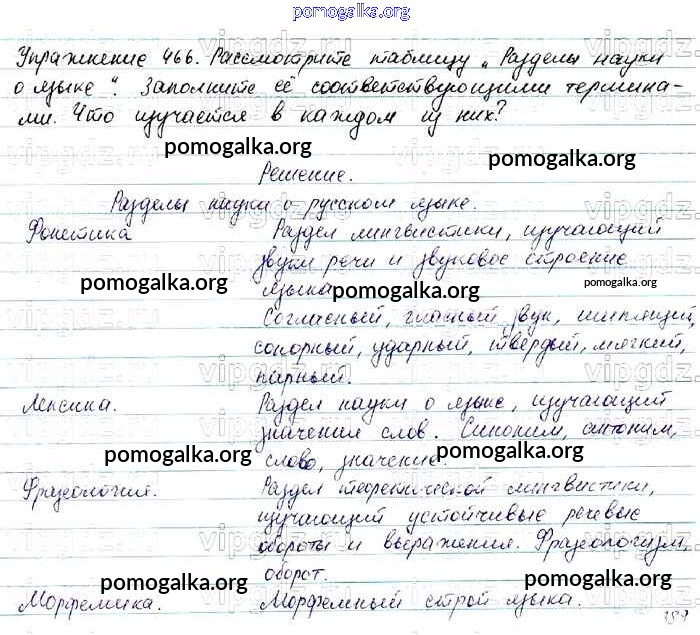 pomogalka.org
Упражнение 466. Рассмотрите таблицу „Разделы науки
о языке“. Заполните её соответствующими термина-
ми. Что изучается в каждом из них?
pomogalka.org pomogalka.org
Решение.
Разделы науки о русском языке.
Фонетика Раздел лингвистики, изучающий
звуки речи и звуковое строение
pomogalka.org pomogalka.org
языка.
pomogalka.org
Согласный, гласный, звук, шипящий,
сонорный, ударный, твёрдый, мягкий,
парный.
Лексика. Раздел науки о языке, изучающий
значения слов. Синоним, антоним,
pomogalka.org pomogalka.org
слово, значение.
Фразеология. Раздел теоретической лингвистики,
изучающий устойчивые речевые
обороты и выражения. Фразеологизм,
pomogalka.org pomogalka.org
оборот.
Морфемика. Морфемный строй языка.
vipgdz.ru